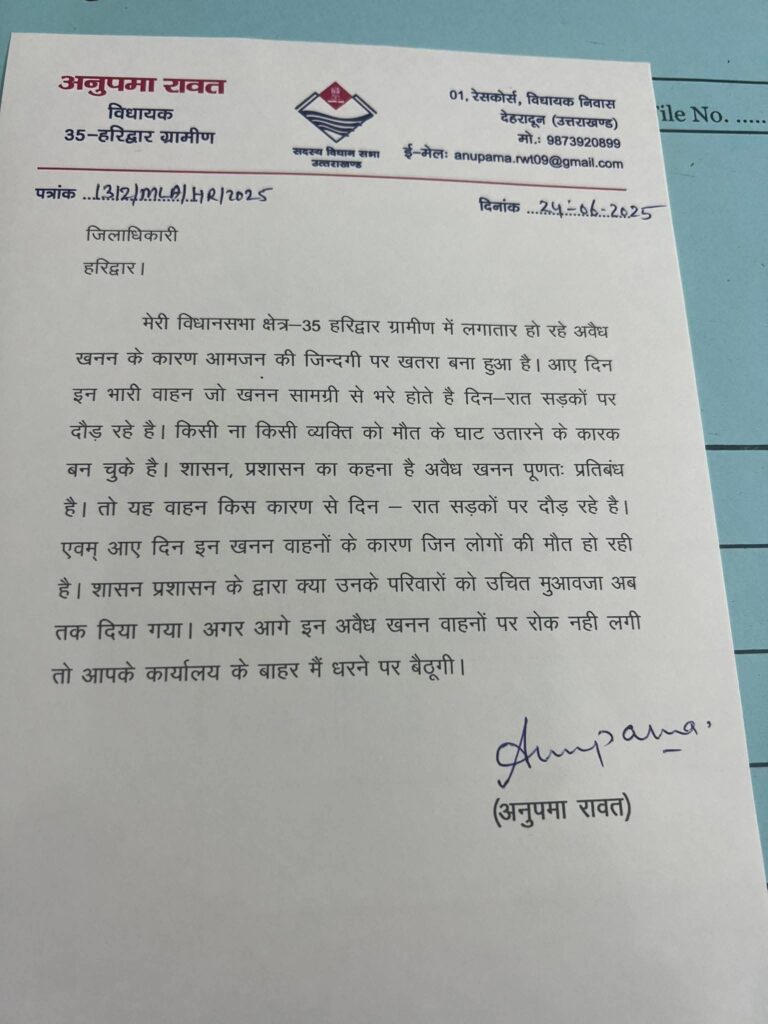 अनुपमा रावत
विधायक
35-हरिद्वार ग्रामीण
सदस्य विधान सभा
उत्तराखण्ड
01, रेसकोर्स, विधायक निवास
देहरादून (उत्तराखण्ड)
मो.: 9873920899
ई-मेल: anupama.rwt09@gmail.com
File No. .....
पत्रांक ...1312/MLA/HR/2025
दिनांक ...24-06-2025
जिलाधिकारी
हरिद्वार।
मेरी विधानसभा क्षेत्र–35 हरिद्वार ग्रामीण में लगातार हो रहे अवैध
खनन के कारण आमजन की जिन्दगी पर खतरा बना हुआ है। आए दिन
इन भारी वाहन जो खनन सामग्री से भरे होते है दिन–रात सड़कों पर
दौड़ रहे है। किसी ना किसी व्यक्ति को मौत के घाट उतारने के कारक
बन चुके है। शासन, प्रशासन का कहना है अवैध खनन पूणतः प्रतिबंध
है। तो यह वाहन किस कारण से दिन – रात सड़कों पर दौड़ रहे है।
एवम् आए दिन इन खनन वाहनों के कारण जिन लोगों की मौत हो रही
है। शासन प्रशासन के द्वारा क्या उनके परिवारों को उचित मुआवजा अब
तक दिया गया। अगर आगे इन अवैध खनन वाहनों पर रोक नही लगी
तो आपके कार्यालय के बाहर मैं धरने पर बैठूगी।
Anupama.
(अनुपमा रावत)